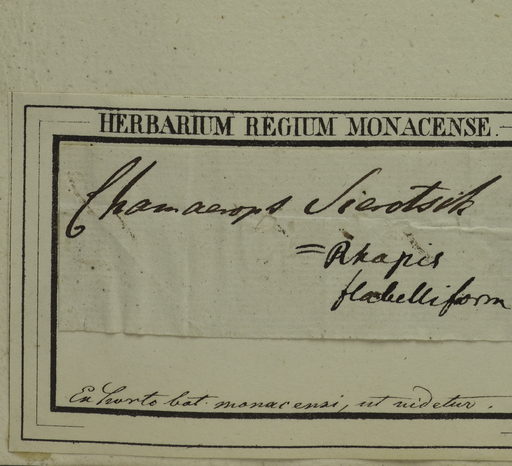 HERBARIUM REGIUM MONACENSE.
Chamaerops Sierotsik
= Rhapis
flabelliform
Ex horto bot. monacensi, ut videtur.